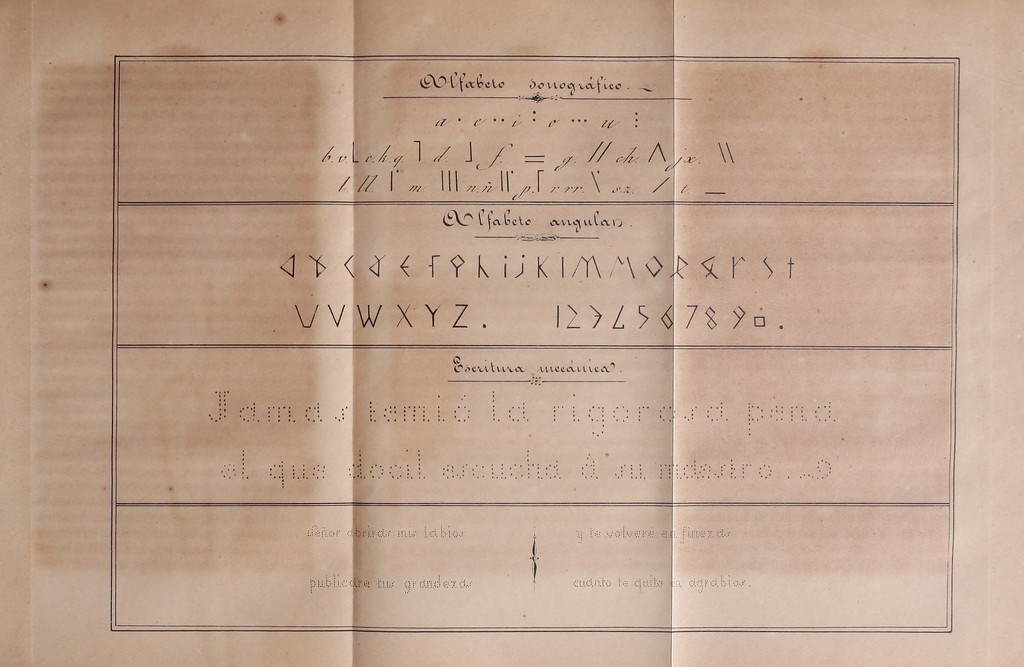 Alfabeto sonográfico.
a · e ·· i : o ··· u ⋮
b.v. ⌊ c.k.q. ⌉ d. ⌋ f. = g. // ch. ∧ j.x. \\
l. ll. m. ||| n.ñ. p. ⌈ r.rr. \ s.z. / t. —
Alfabeto angular.
a b c d e f g h i j k l m n o p q r s t
U V W X Y Z. 1 2 3 4 5 6 7 8 9 0.
Escritura mecánica.
Jamas temió la rigorosa pena
el que docil escucha â su maestro.
Señor abriras mis labios y te volvere en finezas
publicare tus grandezas cuanto te quite en agrabios.